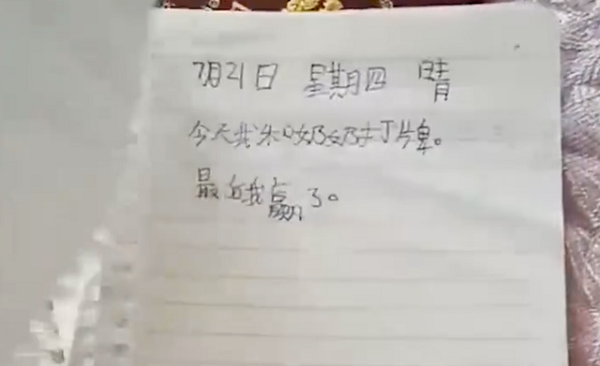 7月21日 星期四 晴
今天我和奶奶打牌。
最后我赢了。